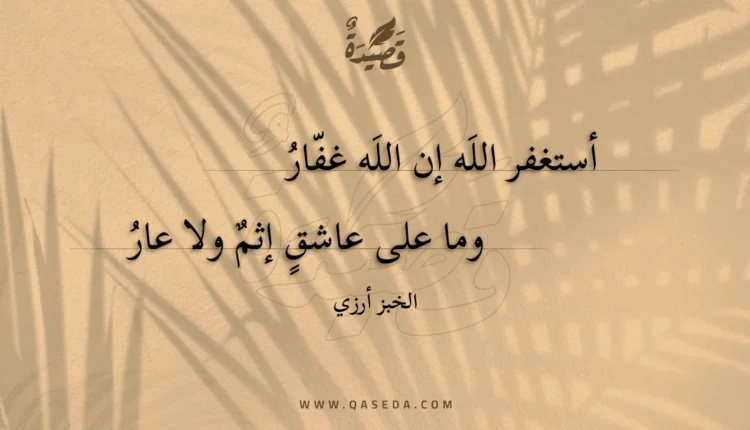 قَصِيْدَةٌ
أستغفر اللَه إن اللَه غفّارُ
وما على عاشقٍ إثمٌ ولا عارُ
الخبز أرزي
WWW.QASEDA.COM